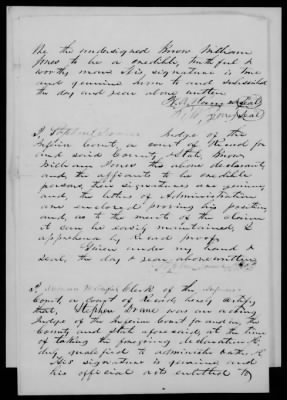 We the undersigned know William
Jones to be a credible, truthful &
worthy man His signature is true
and genuine sworn to and subscribed
the day and year above written
Seal
Seal
I Stephen Judge of the
Inferior Court, a court of Record for
and said County & State know
William Jones the above declarant
and the affiants to be credible
persons, their signatures are genuine
and, the letters of Administration
are enclosed proving his position
and, as to the merits of the claim
it can be easily maintained, I
apprehend by Record proof
Given under my hand &
seal, the day & year above written
I Clerk of the
Court, a Court of Record, hereby certify
that, Stephen was an acting
Judge of the Inferior Court for and in the
County and State aforesaid, at the time
of taking the foregoing declaration &
duly qualified to administer oaths &
His signature is genuine and
his official acts entitled to